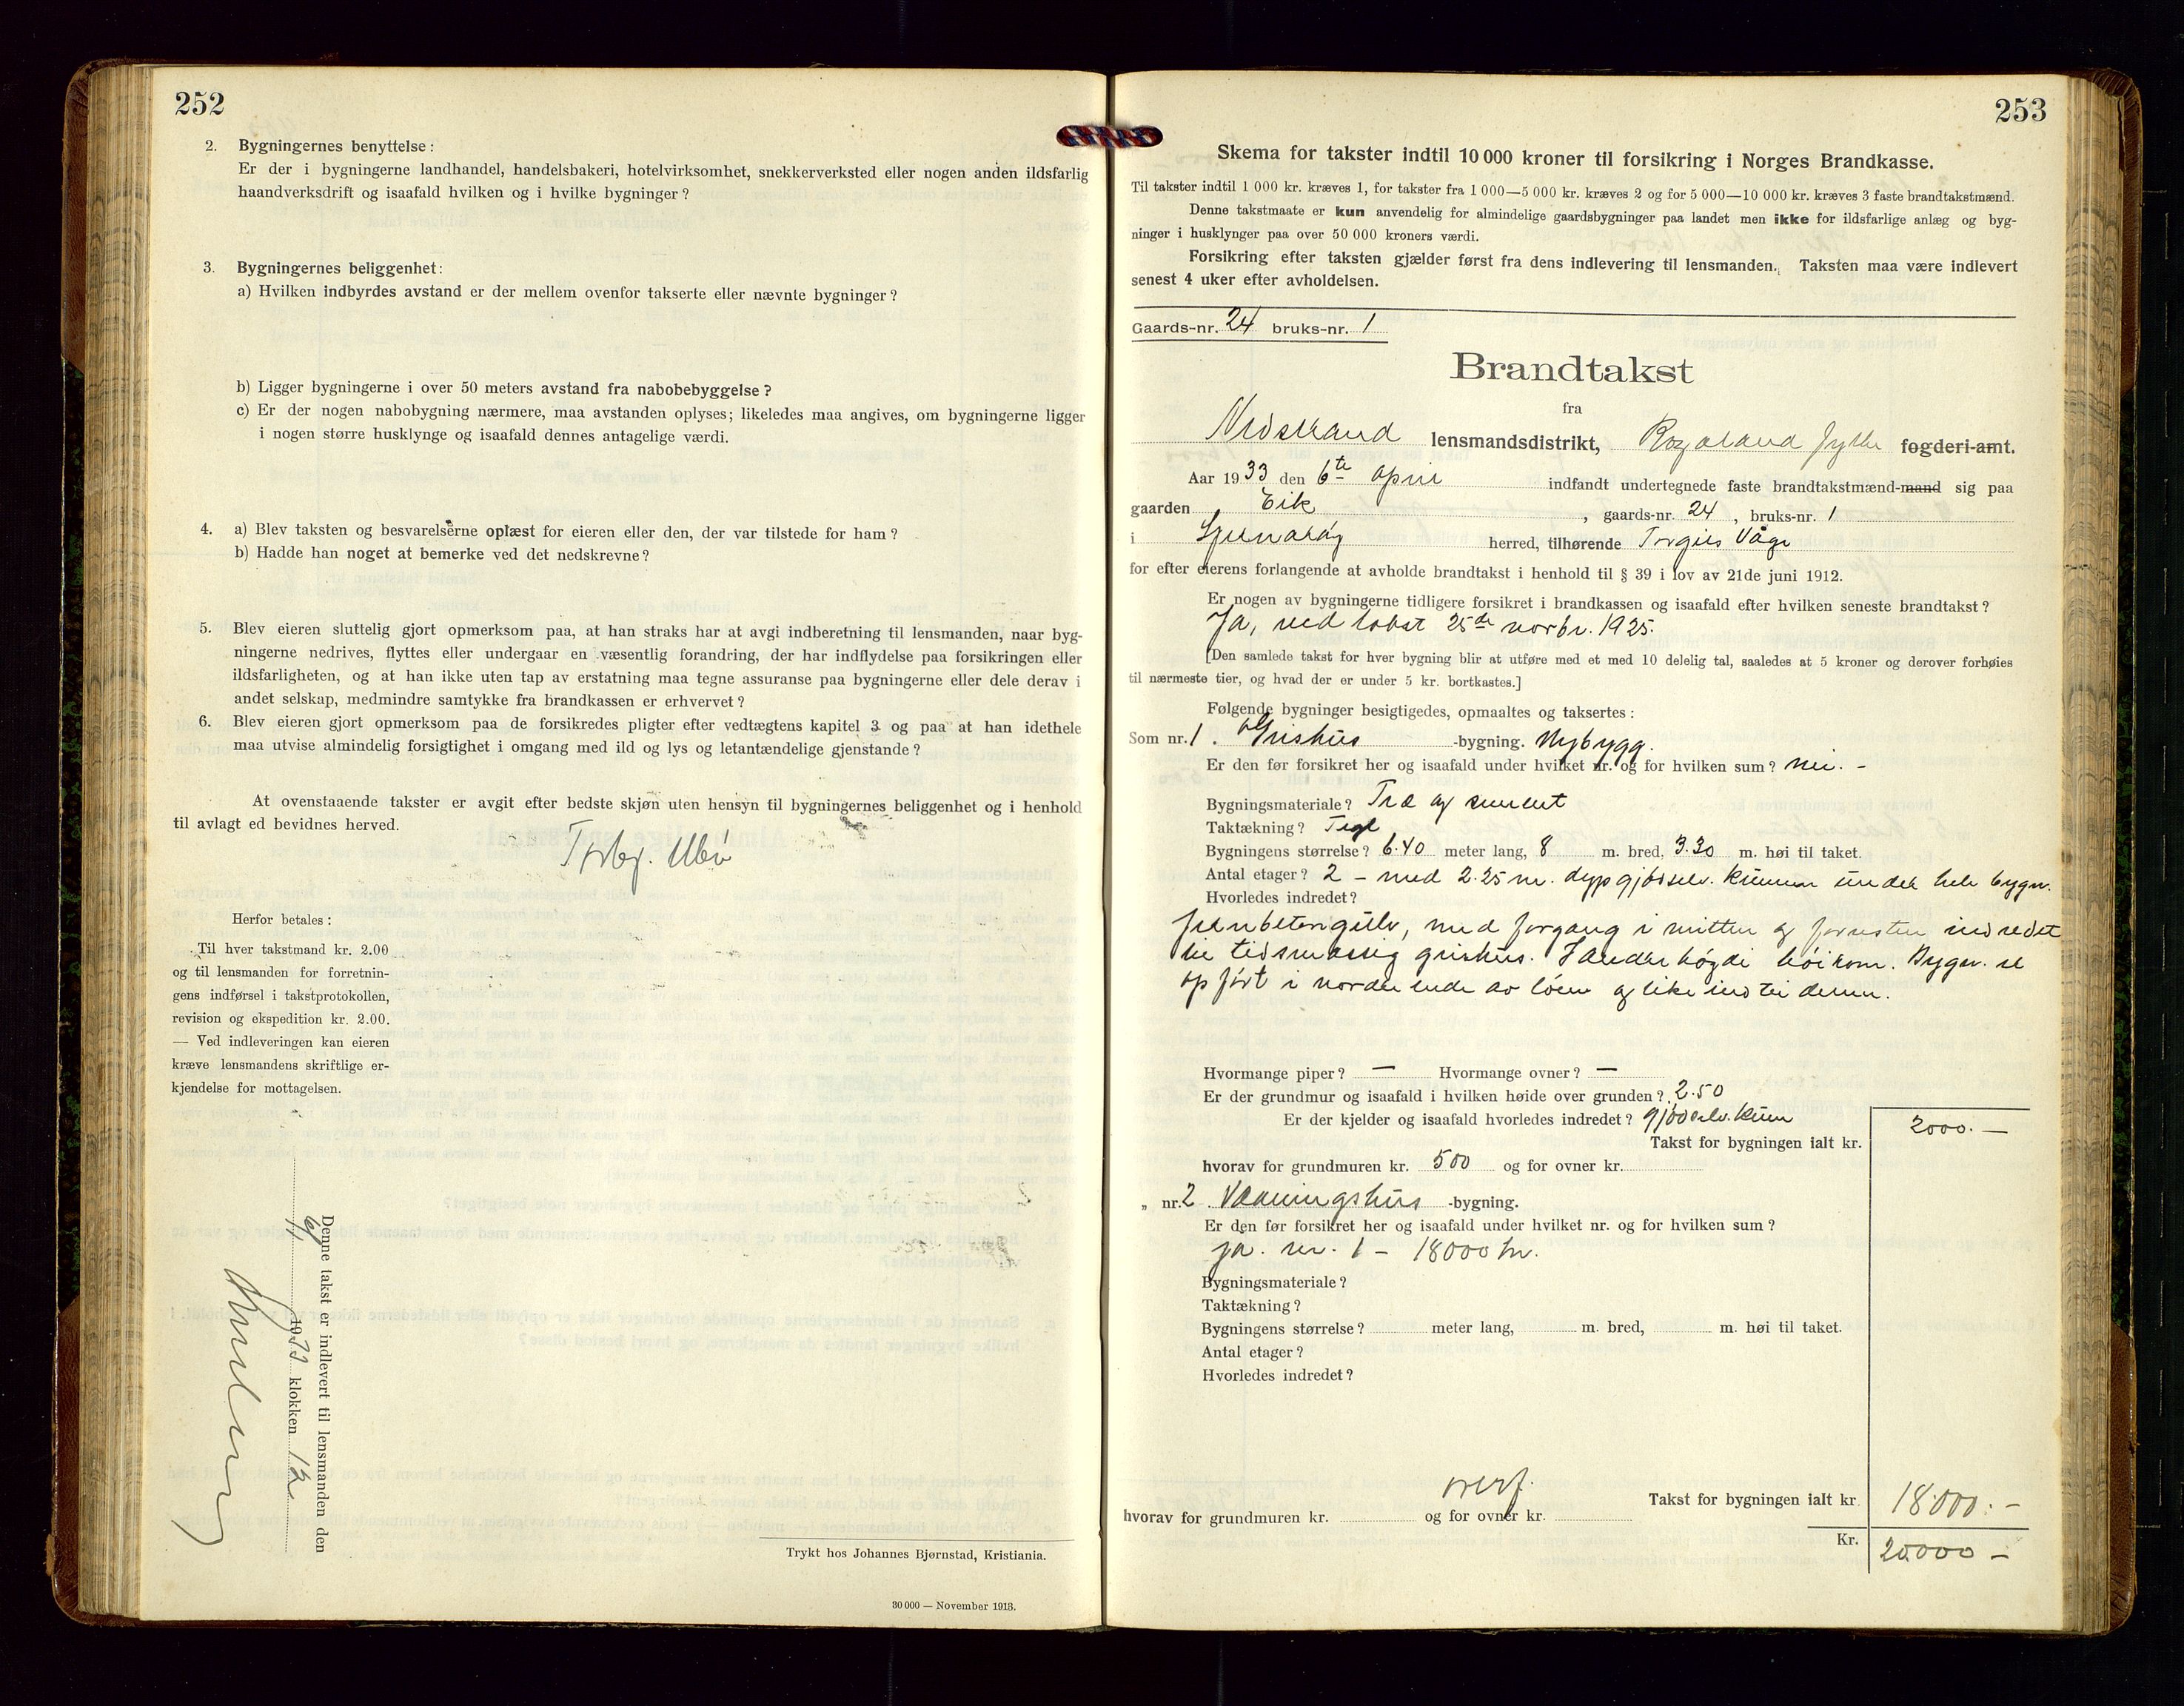 252
2. Bygningernes benyttelse:
Er der i bygningerne landhandel, handelsbakeri, hotelvirksomhet, snekkerverksted eller nogen anden ildsfarlig
haandverksdrift og isaafald hvilken og i hvilke bygninger?
3. Bygningernes beliggenhet:
a) Hvilken indbyrdes avstand er der mellem ovenfor takserte eller nævnte bygninger?
b) Ligger bygningerne i over 50 meters avstand fra nabobebyggelse?
c) Er der nogen nabobygning nærmere, maa avstanden oplyses; likeledes maa angives, om bygningerne ligger
i nogen større husklynge og isaafald dennes antagelige værdi.
4. a) Blev taksten og besvarelserne oplæst for eieren eller den, der var tilstede for ham?
b) Hadde han noget at bemerke ved det nedskrevne?
5. Blev eieren sluttelig gjort opmerksom paa, at han straks har at avgi indberetning til lensmanden, naar byg-
ningerne nedrives, flyttes eller undergaar en væsentlig forandring, der har indflydelse paa forsikringen eller
ildsfarligheten, og at han ikke uten tap av erstatning maa tegne assuranse paa bygningerne eller dele derav i
andet selskap, medmindre samtykke fra brandkassen er erhvervet?
6. Blev eieren gjort opmerksom paa de forsikredes pligter efter vedtægtens kapitel 3 og paa at han idethele
maa utvise almindelig forsigtighet i omgang med ild og lys og letantændelige gjenstande?
At ovenstaaende takster er avgit efter bedste skjøn uten hensyn til bygningernes beliggenhet og i henhold
til avlagt ed bevidnes herved.
Herfor betales:
Til hver takstmand kr. 2.00
og til lensmanden for forretnin-
gens indførsel i takstprotokollen,
revision og ekspedition kr. 2.00.
— Ved indleveringen kan eieren
kræve lensmandens skriftlige er-
kjendelse for mottagelsen.
Denne takst er indlevert til lensmanden den
1933 klokken 12
Trykt hos Johannes Bjørnstad, Kristiania.
30 000 — November 1913.
253
Skema for takster indtil 10 000 kroner til forsikring i Norges Brandkasse.
Til takster indtil 1 000 kr. kræves 1, for takster fra 1 000—5 000 kr. kræves 2 og for 5 000—10 000 kr. kræves 3 faste brandtakstmænd.
Denne takstmaate er kun anvendelig for almindelige gaardsbygninger paa landet men ikke for ildsfarlige anlæg og byg-
ninger i husklynger paa over 50 000 kroners værdi.
Forsikring efter taksten gjælder først fra dens indlevering til lensmanden. Taksten maa være indlevert
senest 4 uker efter avholdelsen.
Gaards-nr. 24 bruks-nr. 1
Brandtakst
fra
Nedstrand lensmandsdistrikt, Rogaland fylke fogderi-amt.
Aar 1933 den 6te april indfandt undertegnede faste brandtakstmænd-mand sig paa
gaarden Eik, gaards-nr. 24, bruks-nr. 1
i herred, tilhørende Torgils Våge
for efter eierens forlangende at avholde brandtakst i henhold til § 39 i lov av 21de juni 1912.
Er nogen av bygningerne tidligere forsikret i brandkassen og isaafald efter hvilken seneste brandtakst?
Ja, ved takst 25de novbr. 1925.
[Den samlede takst for hver bygning blir at utføre med et med 10 delelig tal, saaledes at 5 kroner og derover forhøies
til nærmeste tier, og hvad der er under 5 kr. bortkastes.]
Følgende bygninger besigtigedes, opmaaltes og taksertes:
Som nr. 1. Grishus -bygning. Nybygg.
Er den før forsikret her og isaafald under hvilket nr. og for hvilken sum? nei. -
Bygningsmateriale? Træ og sement
Taktækning? Tegl
Bygningens størrelse? 6.40 meter lang, 8 m. bred, 3.30 m. høi til taket.
Antal etager? 2 - med 2.25 m. dyp gjødselv. kummen under hele bygn.
Hvorledes indredet?
jernbetongulv, med forgang i mitten og foresten indredet
til tidsmessig grishus. I anden høgdi høirom. Bygn. er
opført i nordre ende av løen og like ind til denne.
Hvormange piper? — Hvormange ovner? —
Er der grundmur og isaafald i hvilken høide over grunden? 2.50
Er der kjelder og isaafald hvorledes indredet? gjødselv. kum
Takst for bygningen ialt kr. 2000.—
hvorav for grundmuren kr. 500 og for ovner kr.
„ nr. 2. Vaaningshus -bygning.
Er den før forsikret her og isaafald under hvilket nr. og for hvilken sum?
ja. nr. 1 - 18000 kr.
Bygningsmateriale?
Taktækning?
Bygningens størrelse? meter lang, m. bred, m. høi til taket.
Antal etager?
Hvorledes indredet?
overf.
Takst for bygningen ialt kr. 18.000.-
hvorav for grundmuren kr. og for ovner kr.
Kr. 20.000 -